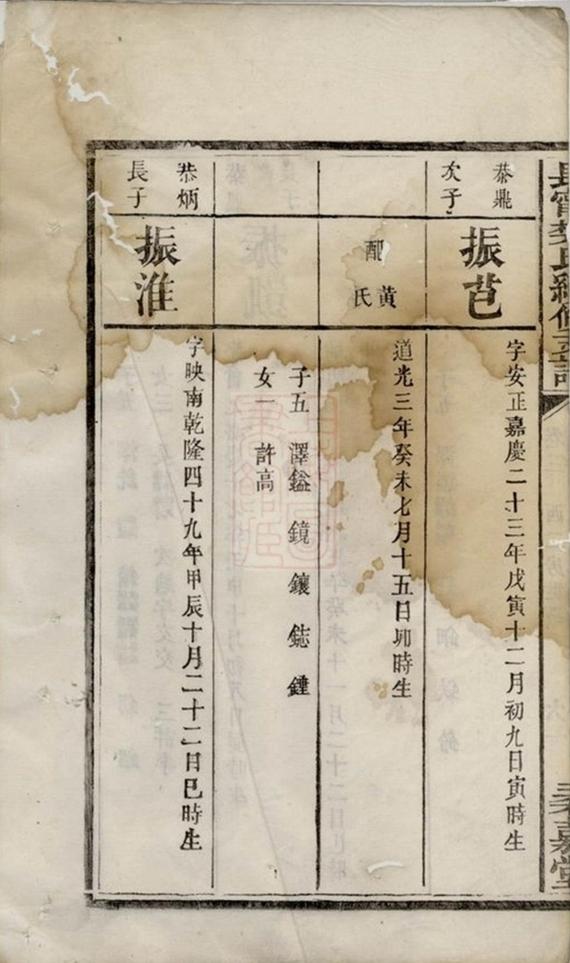 恭鼎
次子
振芑
字安正嘉慶二十三年戊寅十二月初九日寅時生
配
黃
氏
道光三年癸未七月十五日卯時生
子五 澤鎰 鏡 鑲 鋕 鍾
女一 許高
恭炳
長子
振淮
字映南乾隆四十九年甲辰十月二十二日巳時生